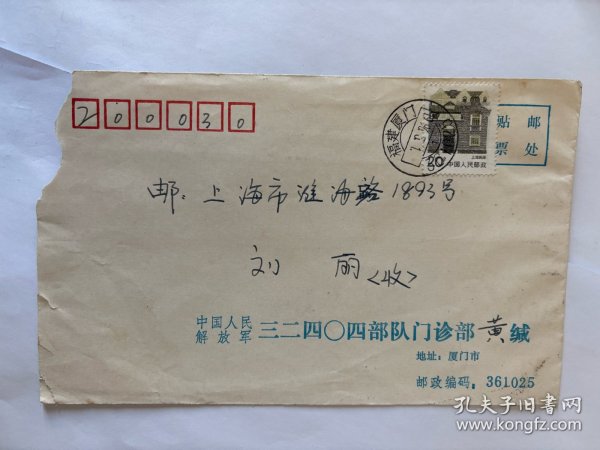 200030
福建厦门
20
中国人民邮政
贴 邮
票 处
邮: 上海市淮海路1893号
刘 丽 <收>
中国人民
解放军 三二四〇四部队门诊部 黄 缄
地址: 厦门市
邮政编码: 361025
孔夫子旧书网
www.kongfz.com